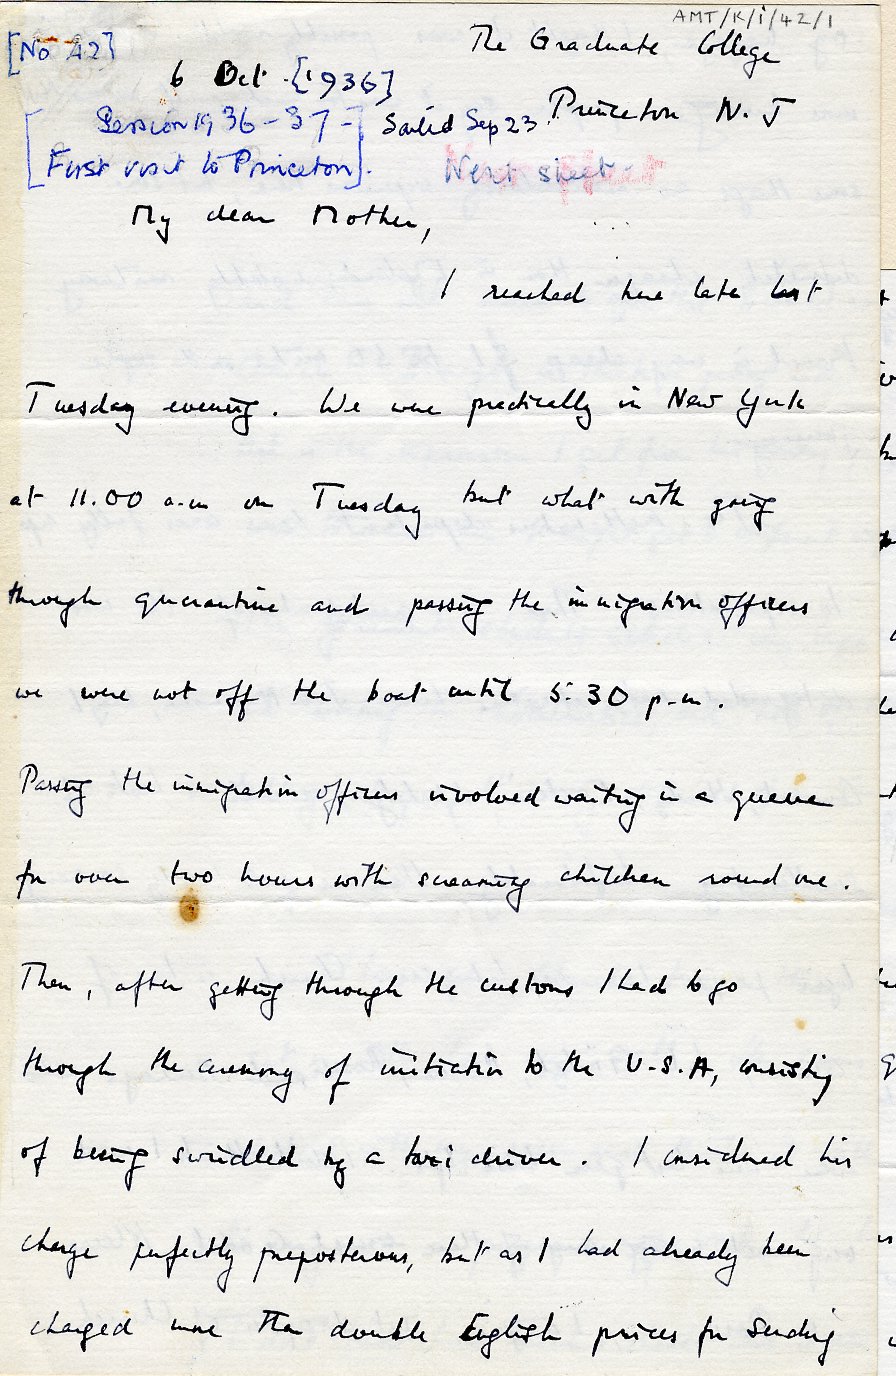 AMT/K/1/42/1
[No 42]
The Graduate College
6 Oct. [1936]
Princeton N. J
[Session 1936-37-
Sailed Sep 23.
First visit to Princeton].
Next sheet
My dear Mother,
I reached here late last
Tuesday evening. We were practically in New York
at 11.00 a.m on Tuesday but what with going
through quarantine and passing the immigration officers
we were not off the boat until 5.30 p.m.
Passing the immigration officers involved waiting in a queue
for over two hours with screaming children round me.
Then, after getting through the customs I had to go
through the ceremony of initiation to the U.S.A, consisting
of being swindled by a taxi driver. I considered his
charge perfectly preposterous, but as I had already been
charged more than double English prices for sending